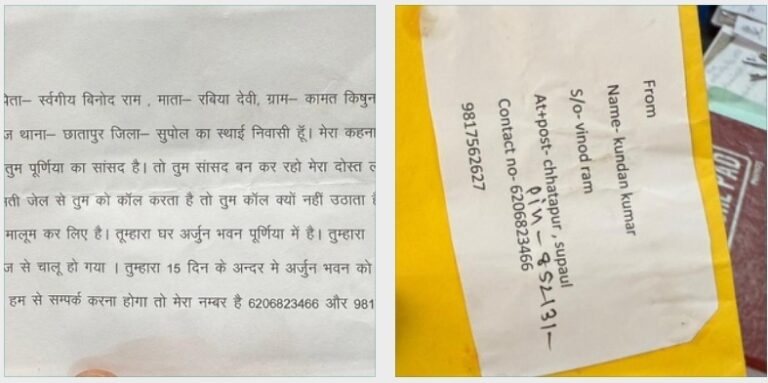 पेता– र्स्वगीय बिनोद राम , माता– रबिया देवी, ग्राम– कामत किषुन
ज थाना– छातापुर जिला– सुपोल का स्थाई निवासी हूँ। मेरा कहना
तुम पूर्णिया का सांसद है। तो तुम सांसद बन कर रहो मेरा दोस्त
जेल से तुम को कॉल करता है तो तुम कॉल क्यों नहीं उठाता
मालूम कर लिए है। तूम्हारा घर अर्जुन भवन पूर्णिया में है। तुम्हारा
ज से चालू हो गया । तुम्हारा 15 दिन के अन्दर मे अर्जुन भवन को
हम से सम्पर्क करना होगा तो मेरा नम्बर है 6206823466 और 981
From
Name- kundan kumar
S/o- vinod ram
At+post- chhatapur , supaul
pin – 852131 –
Contact no- 6206823466
9817562627